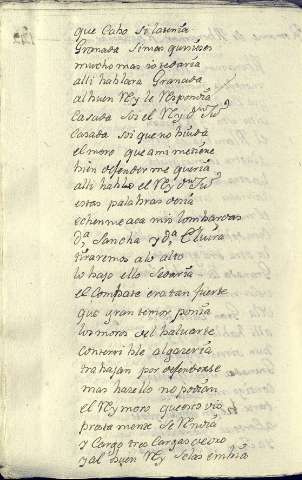 que Cabo si la tenia
Granada si mas quisieses
mucho mas te daria
alli hablara Granada
al buen Rey le Respondia
Casada soi el Rey dⁿ Juº
Casada soi que no biuda
el moro que a mi me tiene
bien defenderme queria
alli hablo el Rey dⁿ Juº
estas palabras decia
echenme aca mis lombardas
dª Sancha y dª Elvira
tiraremos a lo alto
lo bajo ello se daria
el combate era tan fuerte
que gran temor ponia
los moros del baluarte
con terrible algazeria
trabajan por defenderse
mas hazello no podian
el Rey moro que esto vio
prestamente se Rendia
y cargo tres cargas de oro
y al buen Rey se las embia